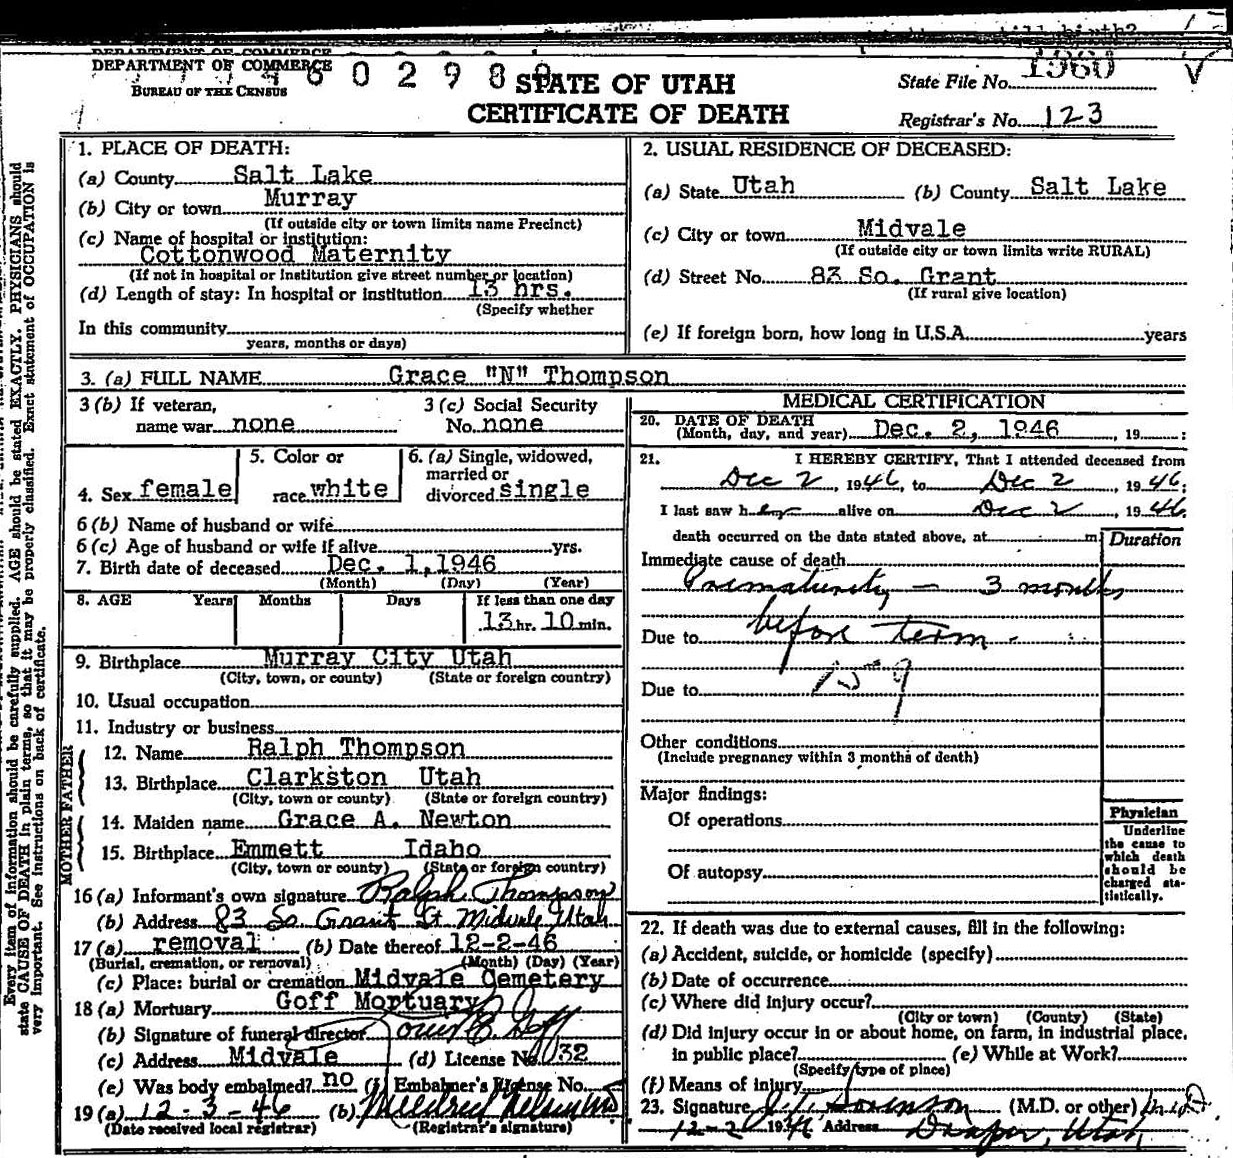 still birth?
DEPARTMENT OF COMMERCE
DEPARTMENT OF COMMERCE
BUREAU OF THE CENSUS
6 0 2 9 8
STATE OF UTAH
CERTIFICATE OF DEATH
State File No. 1960
Registrar's No. 123
Every item of information should be carefully supplied. AGE should be stated EXACTLY. PHYSICIANS should
state CAUSE OF DEATH in plain terms, so that it may be properly classified. Exact statement of OCCUPATION is
very important. See instructions on back of certificate.
1. PLACE OF DEATH:
(a) County Salt Lake
(b) City or town Murray
(If outside city or town limits name Precinct)
(c) Name of hospital or institution:
Cottonwood Maternity
(If not in hospital or institution give street number or location)
(d) Length of stay: In hospital or institution 13 hrs.
(Specify whether
In this community
years, months or days)
2. USUAL RESIDENCE OF DECEASED:
(a) State Utah (b) County Salt Lake
(c) City or town Midvale
(If outside city or town limits write RURAL)
(d) Street No. 83 So. Grant
(If rural give location)
(e) If foreign born, how long in U.S.A. years
3. (a) FULL NAME Grace "N" Thompson
3 (b) If veteran,
name war none
3 (c) Social Security
No. none
4. Sex female
5. Color or
race white
6. (a) Single, widowed,
married or
divorced single
6 (b) Name of husband or wife
6 (c) Age of husband or wife if alive yrs.
7. Birth date of deceased Dec. 1, 1946
(Month) (Day) (Year)
8. AGE Years Months Days If less than one day
13 hr. 10 min.
9. Birthplace Murray City Utah
(City, town, or county) (State or foreign county)
10. Usual occupation
11. Industry or business
FATHER
12. Name Ralph Thompson
13. Birthplace Clarkston Utah
(City, town or county) (State or foreign country)
MOTHER
14. Maiden name Grace A. Newton
15. Birthplace Emmett Idaho
(City, town or county) (State or foreign country)
16 (a) Informant's own signature Ralph Thompson
(b) Address 83 So Grant St Midvale Utah
17 (a) removal (b) Date thereof 12-2-46
(Burial, cremation, or removal) (Month) (Day) (Year)
(c) Place: burial or cremation Midvale Cemetery
18 (a) Mortuary Goff Mortuary
(b) Signature of funeral director Goff
(c) Address Midvale (d) License No. 1032
(e) Was body embalmed? no (f) Embalmer's License No.
19 (a) 12-3-46 (b) Mildred
(Date received local registrar) (Registrar's signature)
MEDICAL CERTIFICATION
20. DATE OF DEATH
(Month, day, and year) Dec. 2, 1946, 19 :
21. I HEREBY CERTIFY, That I attended deceased from
Dec 2, 1946, to Dec 2, 1946;
I last saw her alive on Dec 2, 1946
death occurred on the date stated above, at m
Duration
Immediate cause of death
Prematurity — 3 months
Due to before term.
159
Due to
Other conditions
(Include pregnancy within 3 months of death)
Major findings:
Of operations
Of autopsy
Physician
Underline
the cause to
which death
should be
charged sta-
tistically.
22. If death was due to external causes, fill in the following:
(a) Accident, suicide, or homicide (specify)
(b) Date of occurrence
(c) Where did injury occur?
(City or town) (County) (State)
(d) Did injury occur in or about home, on farm, in industrial place,
in public place? (e) While at Work?
(Specify type of place)
(f) Means of injury
23. Signature Sorenson (M.D. or other) M.D.
12-2 1946 Address Draper, Utah